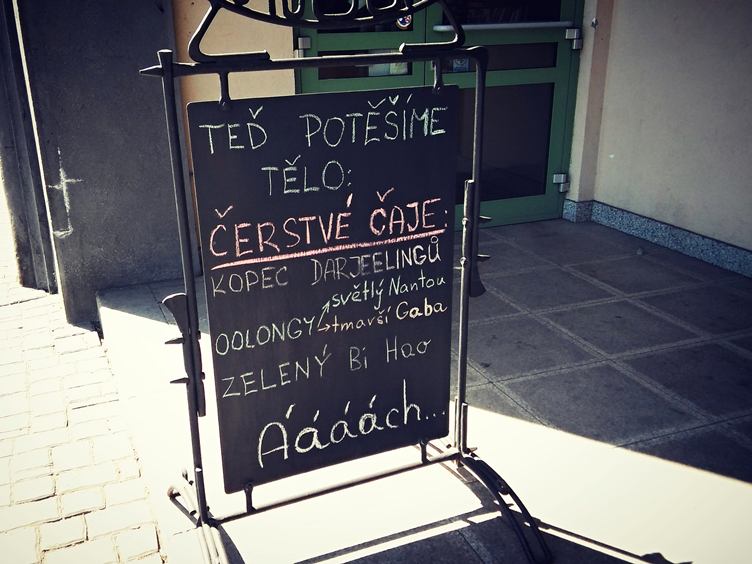 TEĎ POTĚŠÍME
TĚLO:
ČERSTVÉ ČAJE:
KOPEC DARJEELINGŮ
OOLONGY světlý Nantou
tmavší Gaba
ZELENÝ Bi Hao
Áááách...